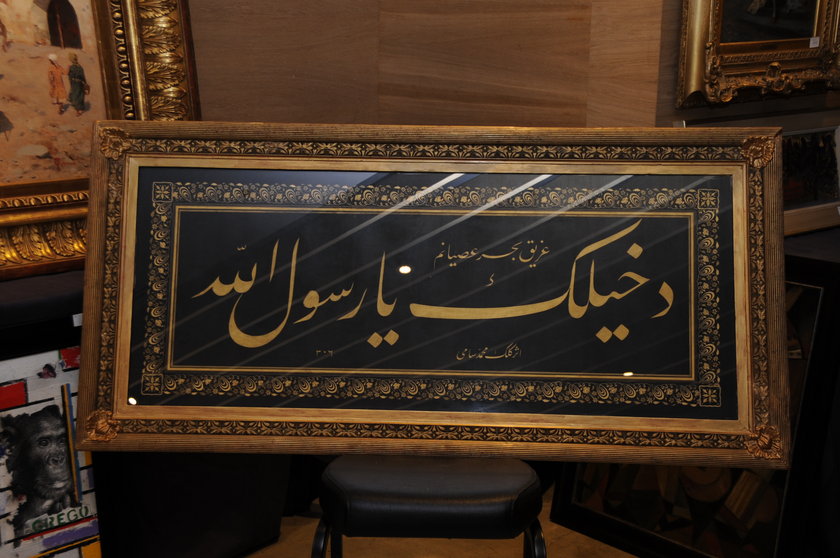 غريق بحر عصيانم
دخيلك يا رسول الله
اثر كلك محمد سامى
٣٠٦
GREGO